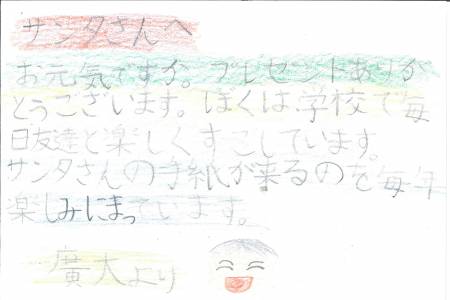 サンタさんへ
お元気ですか。プレゼントありが
とうございます。ぼくは学校で毎
日友達と楽しくすごしています。
サンタさんの手紙が来るのを毎年
楽しみにまっています。
廣大より